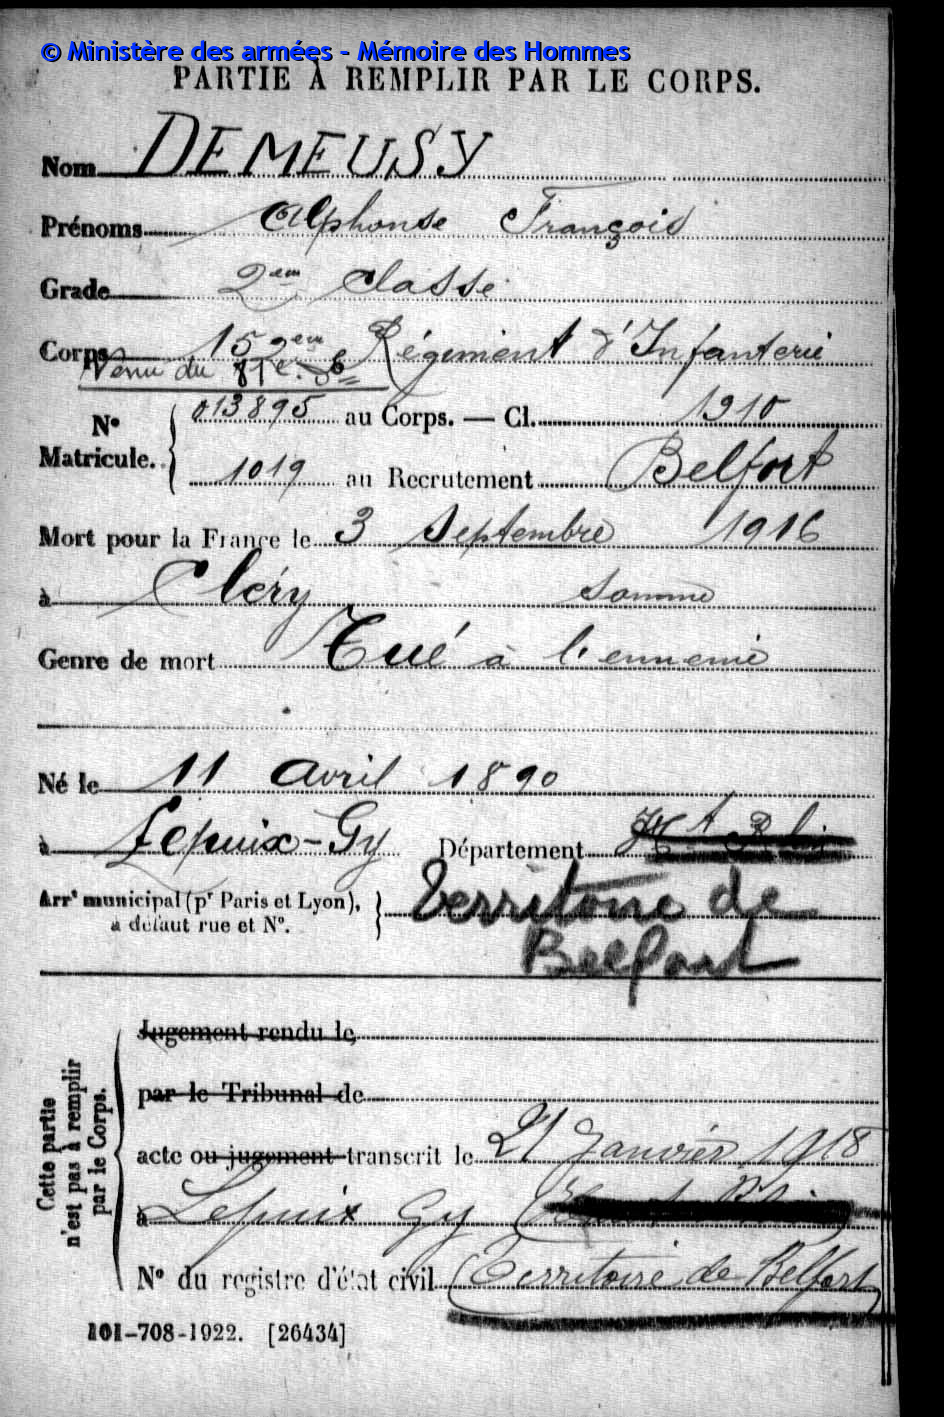 © Ministère des armées - Mémoire des Hommes
PARTIE À REMPLIR PAR LE CORPS.
Nom DEMEUSY
Prénoms Alphonse François
Grade 2eme Classe
Corps 152eme Régiment d'Infanterie
Venu du
N° Matricule. 013895 au Corps. — Cl. 1910
1019 au Recrutement Belfort
Mort pour la France le 3 Septembre 1916
à Cléry Somme
Genre de mort Tué à l'ennemie
Né le 11 Avril 1890
à Lepuix-Gy Département Ht Rhin
Arrt municipal (pr Paris et Lyon), à défaut rue et N°. Territoire de
Belfort
Jugement rendu le
par le Tribunal de
acte ou jugement transcrit le 21 Janvier 1918
à Lepuix Gy
N° du registre d'état civil (Territoire de Belfort)
Cette partie n'est pas à remplir par le Corps.
101-708-1922. [26434]